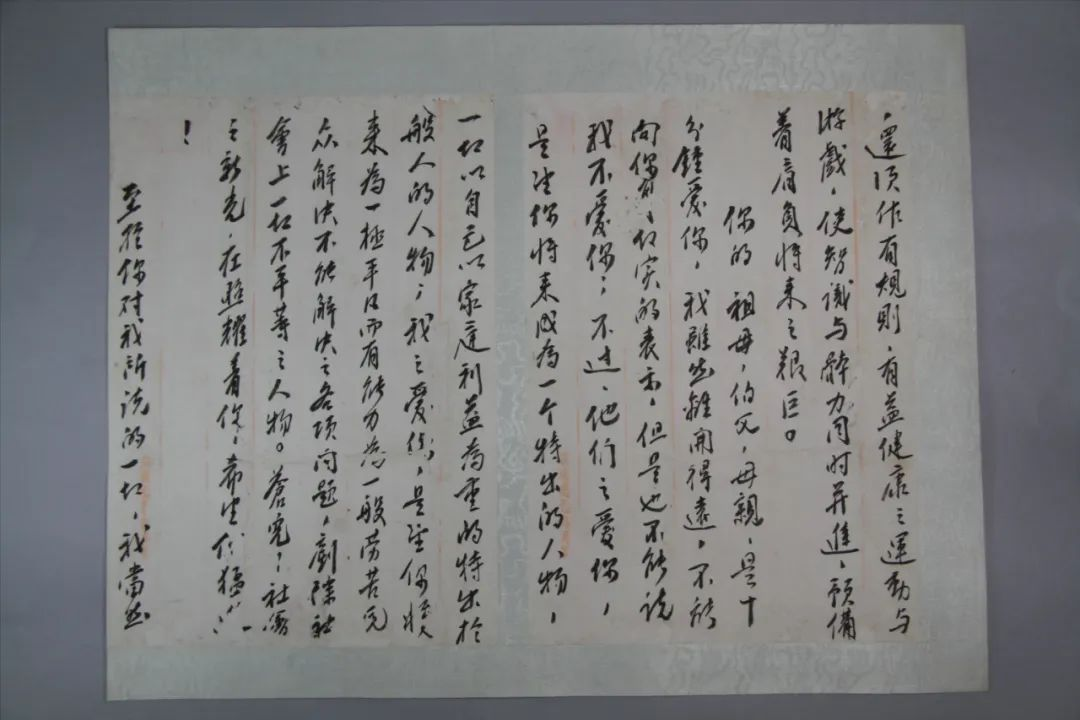 ，還須作有規則，有益健康之運動与
游戲，使智識与體力同时并進，預備
着肩負将来之艱巨。
你的祖母，伯父，母親，是十
分鍾愛你，我雖然離開得遠，不能
向你有切实的表示，但是也不能说
我不愛你；不过，他们之愛你，
是望你将来成为一个特出的人物，
一切以自己以家庭利益為重的特出於
般人的人物；我之愛你，是望你将
来為一極平日而有能力為一般劳苦民
众解决不能解决之各项问题，剷除社
會上一切不平等之人物。蒼兒！社會
之新光，在照耀着你，希望你猛
！
至於你对我所说的一切，我當然